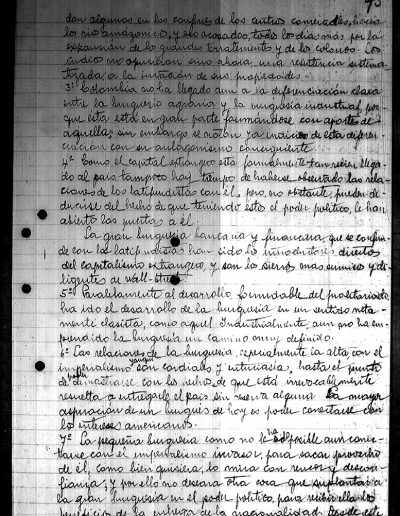 75
dan algunos en los confines de los centros comerciales, hacia
lo rio amazonico, y son acosados, todos los dias mas por la
expansion de los grandes terratenientes y de los colonos. Los
indios no oponen sino ahora, una resistencia sistema-
tizada, a la intrucion de sus propiedades.
3º Colombia no ha llegado aun a la diferenciacion clara
entre la burguesia agraria y la burguesia industrial, por
que esta está en gran parte formandose con aportes de
aquella; sin embargo se notan ya indicios de esta diferen-
ciacion con su antagonismo consiguiente.
4º Como el capital extrangero está formalmente recien llega
do al pais tampoco hay tiempo de haberse observado las rela-
ciones de los latifundistas con él, pero, no obstante, pueden de-
ducirse del hecho de que teniendo estos el poder politico, le han
abierto las puertas a él.
La gran burguesia bancaria y financiera, que se confun-
de con los latifundistas han sido los introductores directos
del capitalismo extrangero, y son los siervos mas sumisos y di-
ligentes de Wall-Street.
5º Paralelamente al desarrollo formidable del proletariado
ha ido el desarrollo de la burguesia en un sentido neta-
mente clasista, como aquel. Industrialmente, aun no ha em-
prendido la burguesia un camino muy definido.
6º Las relaciones de la burguesia, especialmente la alta, con el
imperialismo yanqui son cordiales y entusiastas, hasta el punto
de demostrarse con los hechos de que está irrevocablemente
resuelta a entregarle el pais sin reserva alguna. La mayor
aspiracion de un burgues de hoy es poder conectarse con
los intereses americanos.
7º La pequeña burguesia como no le ha sido posible aun conec-
tarse con el imperialismo invasor, para sacar provecho
de él, como bien quisiera, lo mira con rencor y descon-
fianza; y por ello no desearia otra cosa que suplantar a
la gran burguesia en el poder politico, para recibir ella los
beneficios de la entrega de la nacionalidad. Desde este